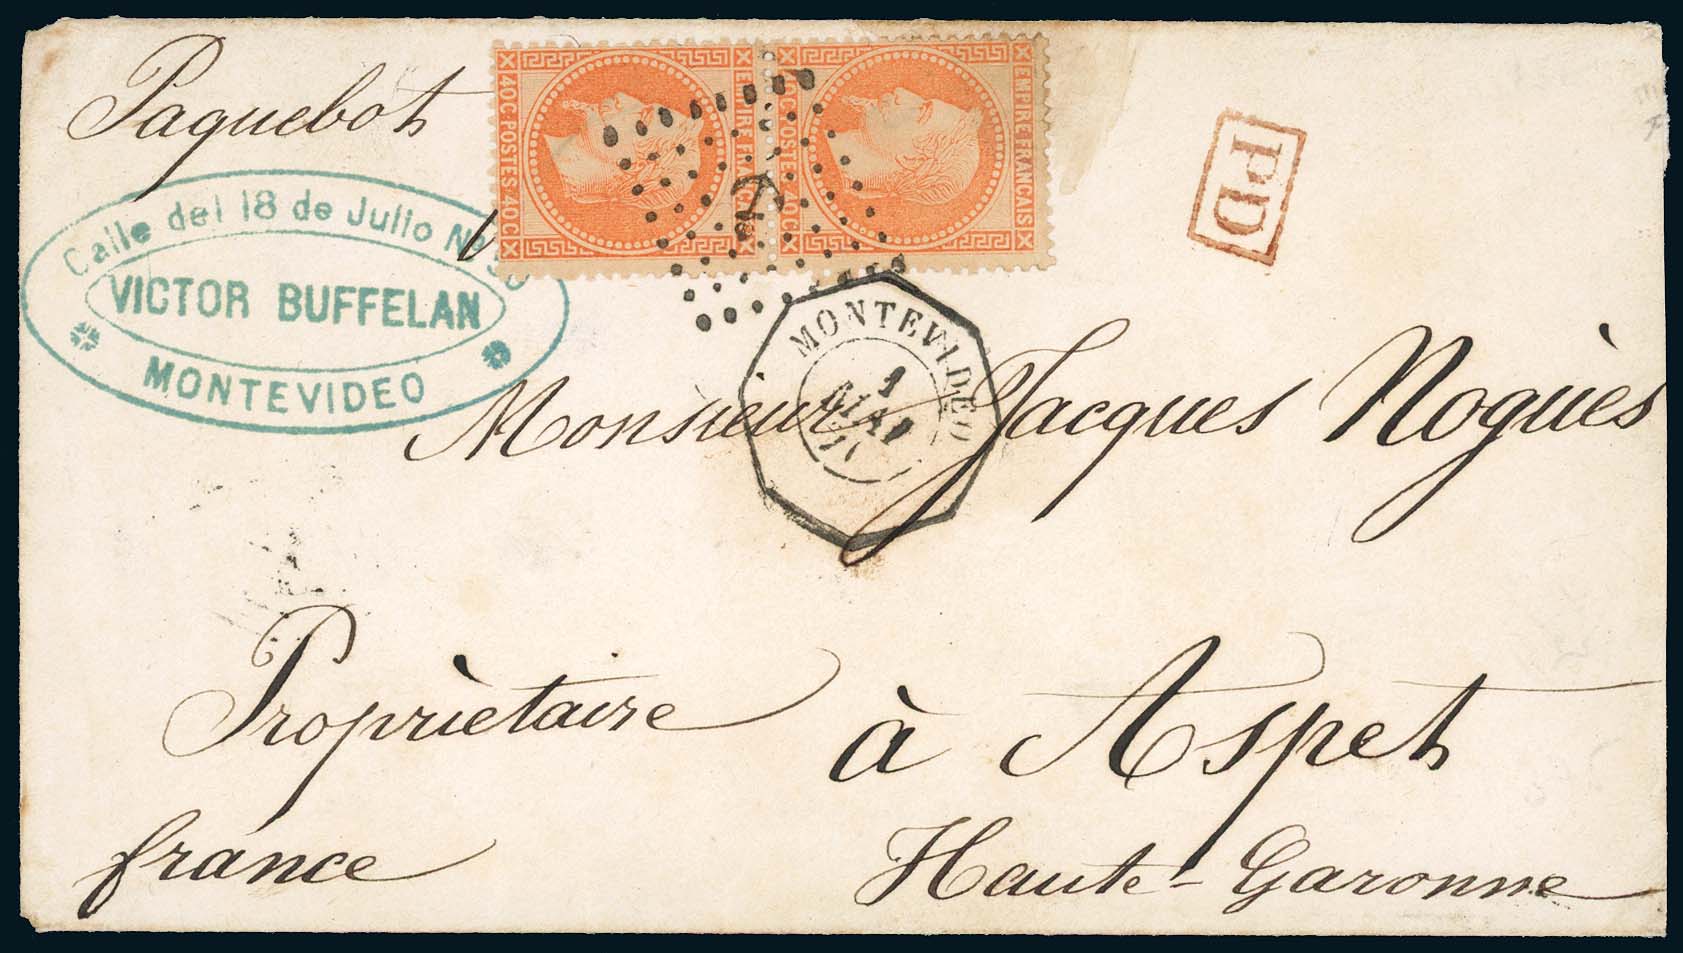 Paquebot
Calle del 18 de Julio No
VICTOR BUFFELAN
MONTEVIDEO
EMPIRE FRANÇAIS
40C POSTES 40C
EMPIRE FRANÇAIS
40C POSTES 40C
PD
MONTEVIDEO
1
MAI
Monsieur Jacques Noguès
Propriètaire à Aspet
france Haute-Garonne